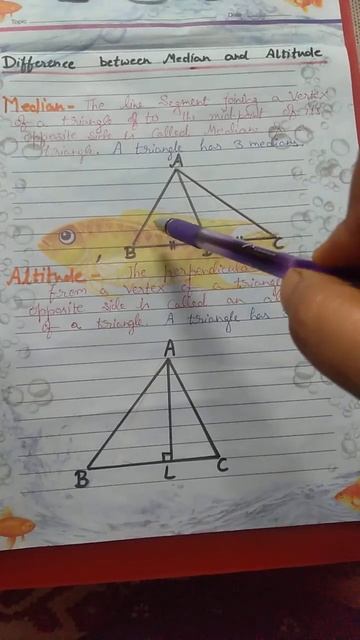 Topic
Date
Difference between Median and Altitude
Median - The line Segment joining a Vertex
of a triangle to the mid point of its
opposite side is called Median of
triangle. A triangle has 3 medians.
A
B
C
Altitude - The perpendicular
from a Vertex of a triangle
opposite side is called an
of a triangle. A triangle has
A
B L C